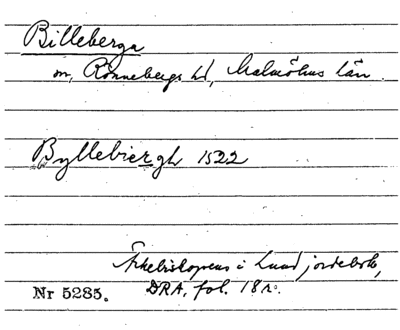 Billeberga
sn, Rönnebergs hd, Malmöhus län.
Byllebiergh 1522
Ärkebiskopens i Lund jordebok,
Nr 5285. DRA, fol. 18r.